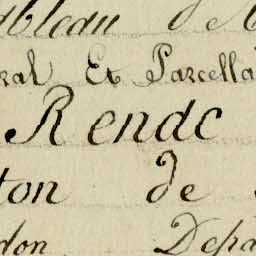 ableau d'A
ral Et Parcella
Rendc
ton de
don Depa